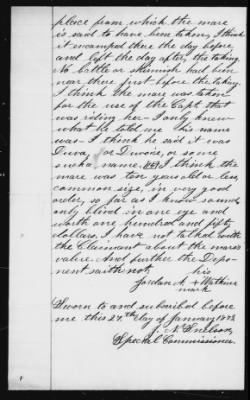 place from which the mare
is said to have been taken, I think
it encamped there the day before
and left the day after, the taking.
No battle or skirmish had been
near there just before the taking
I think the mare was taken
for the use of the Capt that
was riding her - I only knew
what he told me his name
was - I think he said it was
or Divoise, or some
such a name. I think the
mare was ten years old or less,
common size, in very good
order, so far as I know sound
only blind in one eye and
worth one hundred and fifty
dollars. I have not talked with
the Claimant about the mare's
value. And further the Depo-
nent saith not. his
Jordan A + Watkins
mark
Sworn to and subscribed before
me this 24th day of January 1873
J. N. Snelson,
Special Commissioner.